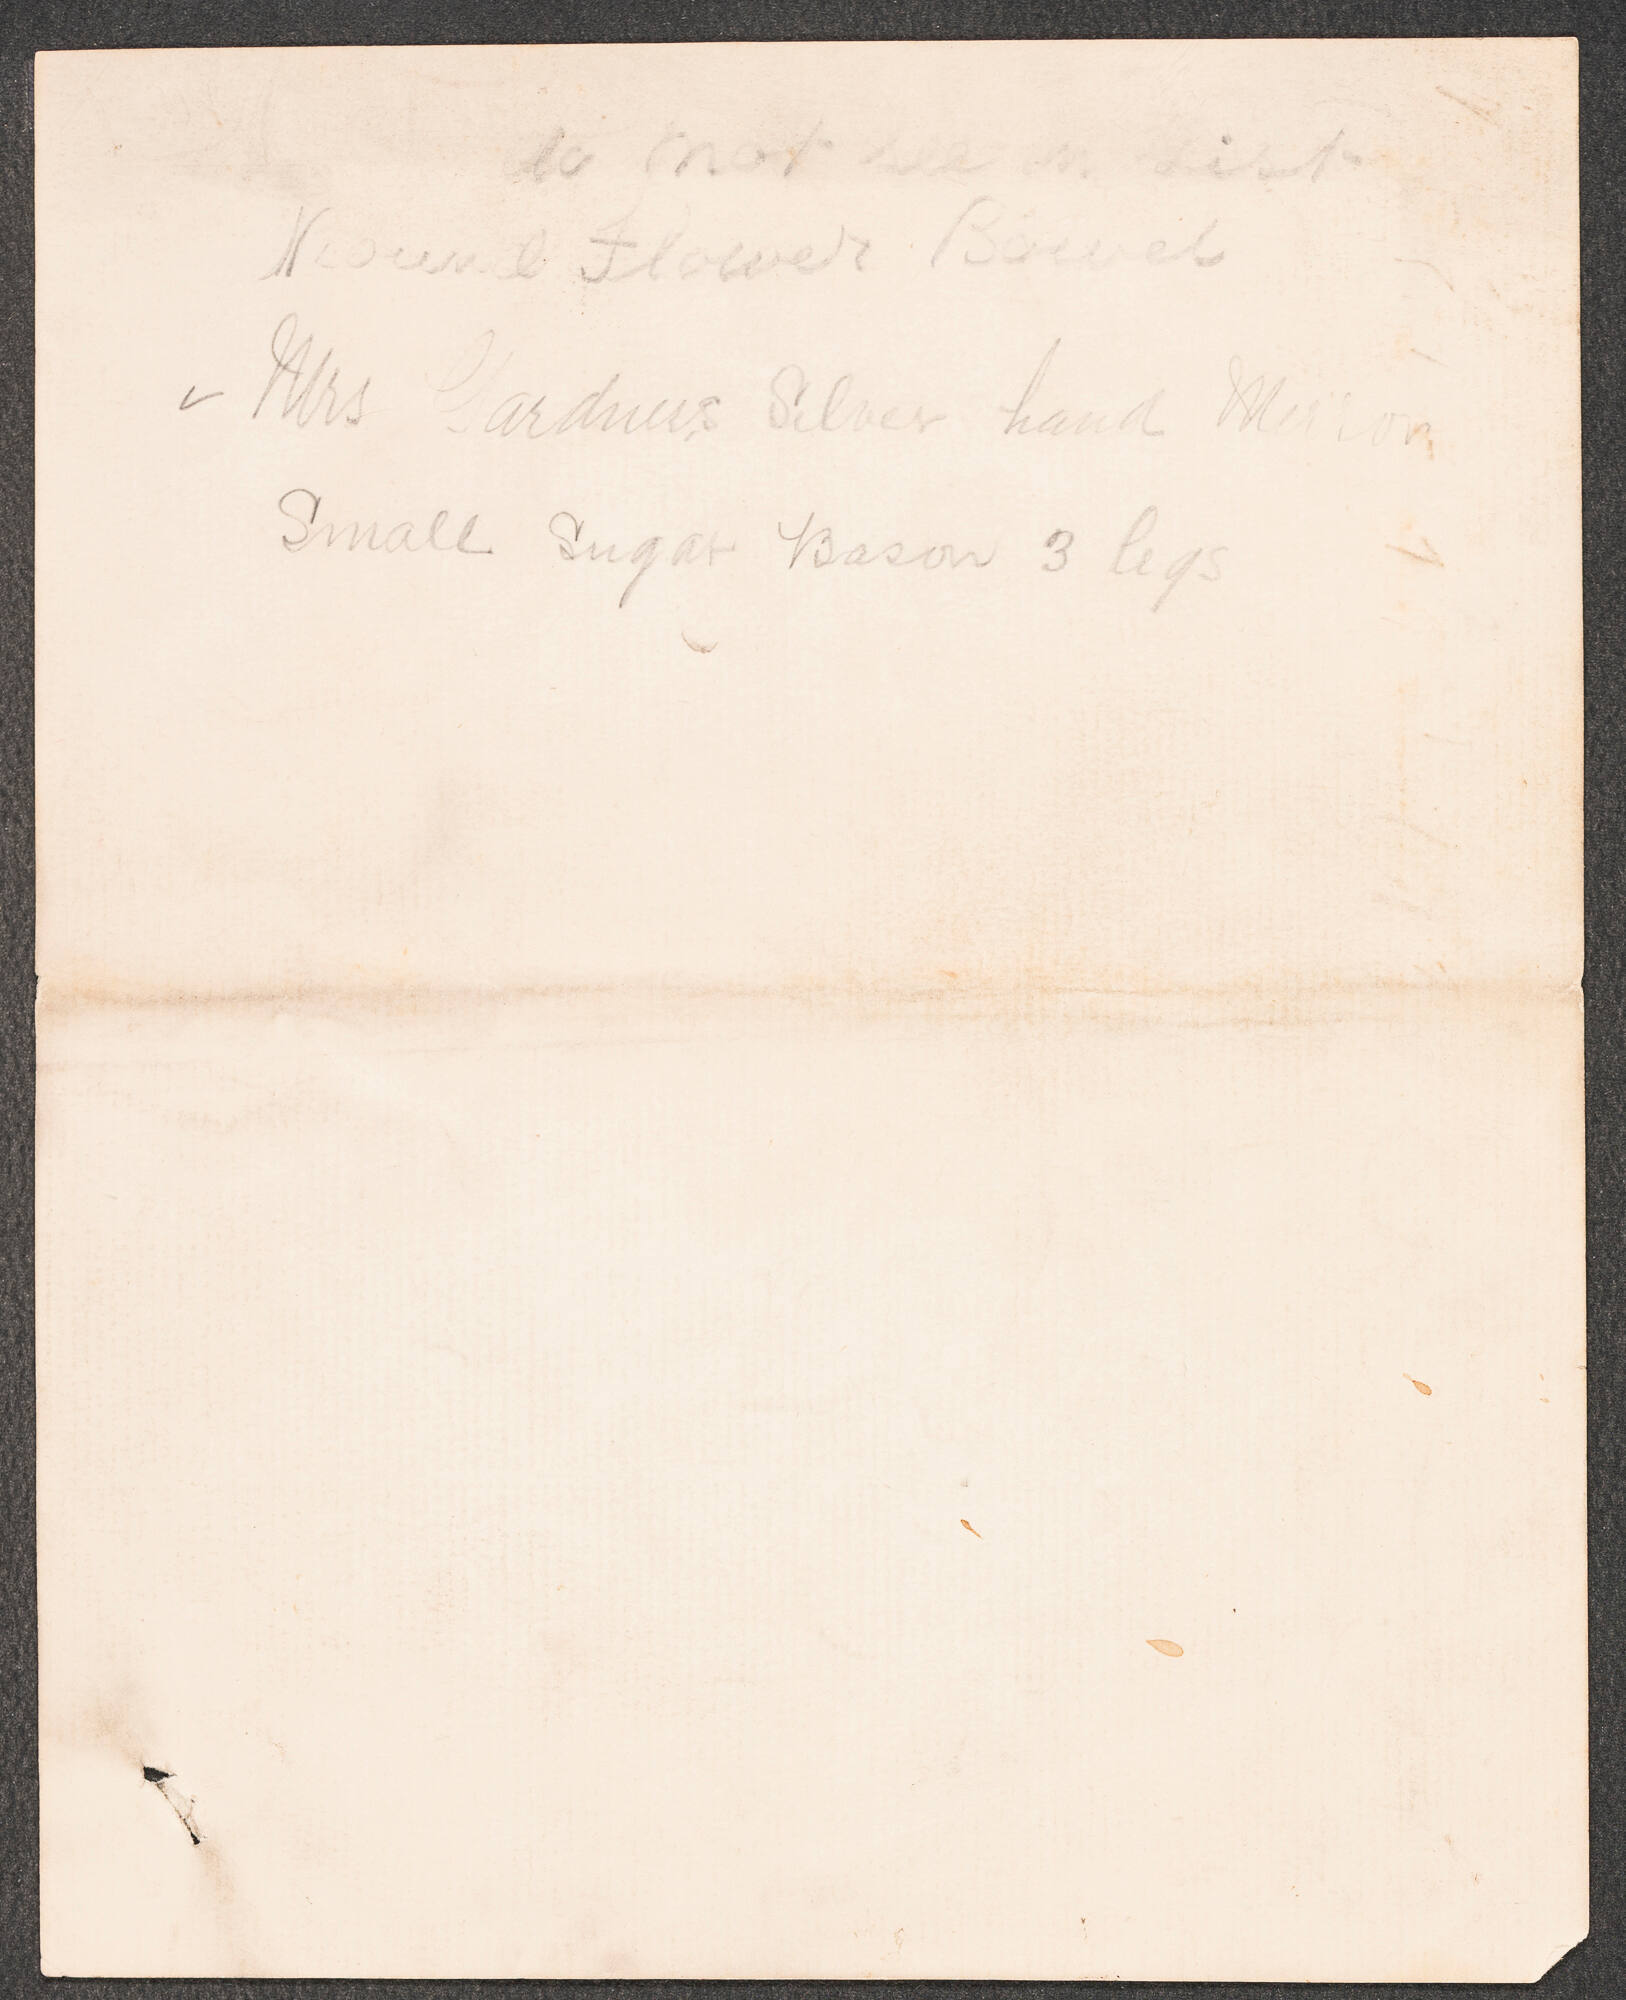 do not see on List
Round Flower Bowel
✓ Mrs Gardners Silver hand Mirror
Small Sugar Bason 3 legs